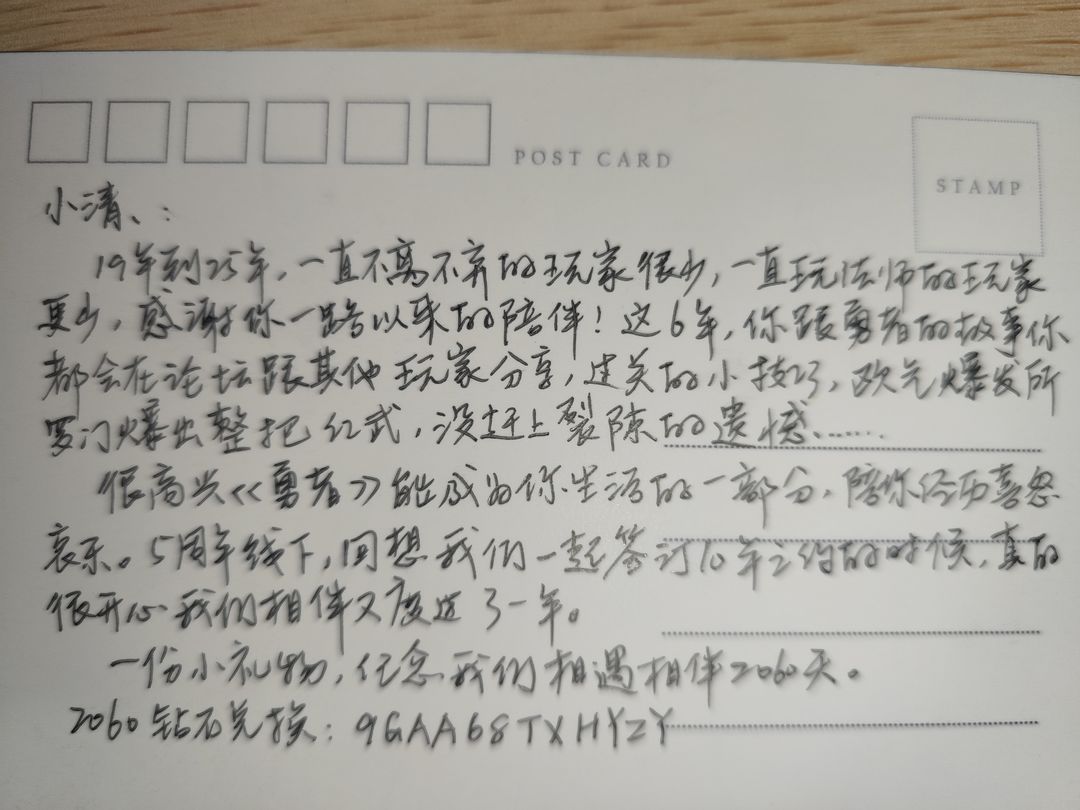 POST CARD
STAMP
小清、:
19年到25年,一直不离不弃的玩家很少,一直玩法师的玩家
更少,感谢你一路以来的陪伴!这6年,你跟勇者的故事你
都会在论坛跟其他玩家分享,过关的小技巧,欧气爆发所
罗门爆出整把红武,没赶上裂隙的遗憾……
很高兴《勇者》能成为你生活的一部分,陪你经历喜怒
哀乐。5周年线下,回想我们一起签订10年之约的时候,真的
很开心我们相伴又度过了一年。
一份小礼物,纪念我们相遇相伴2060天。
2060钻石兑换:9GAA68TXHYZY